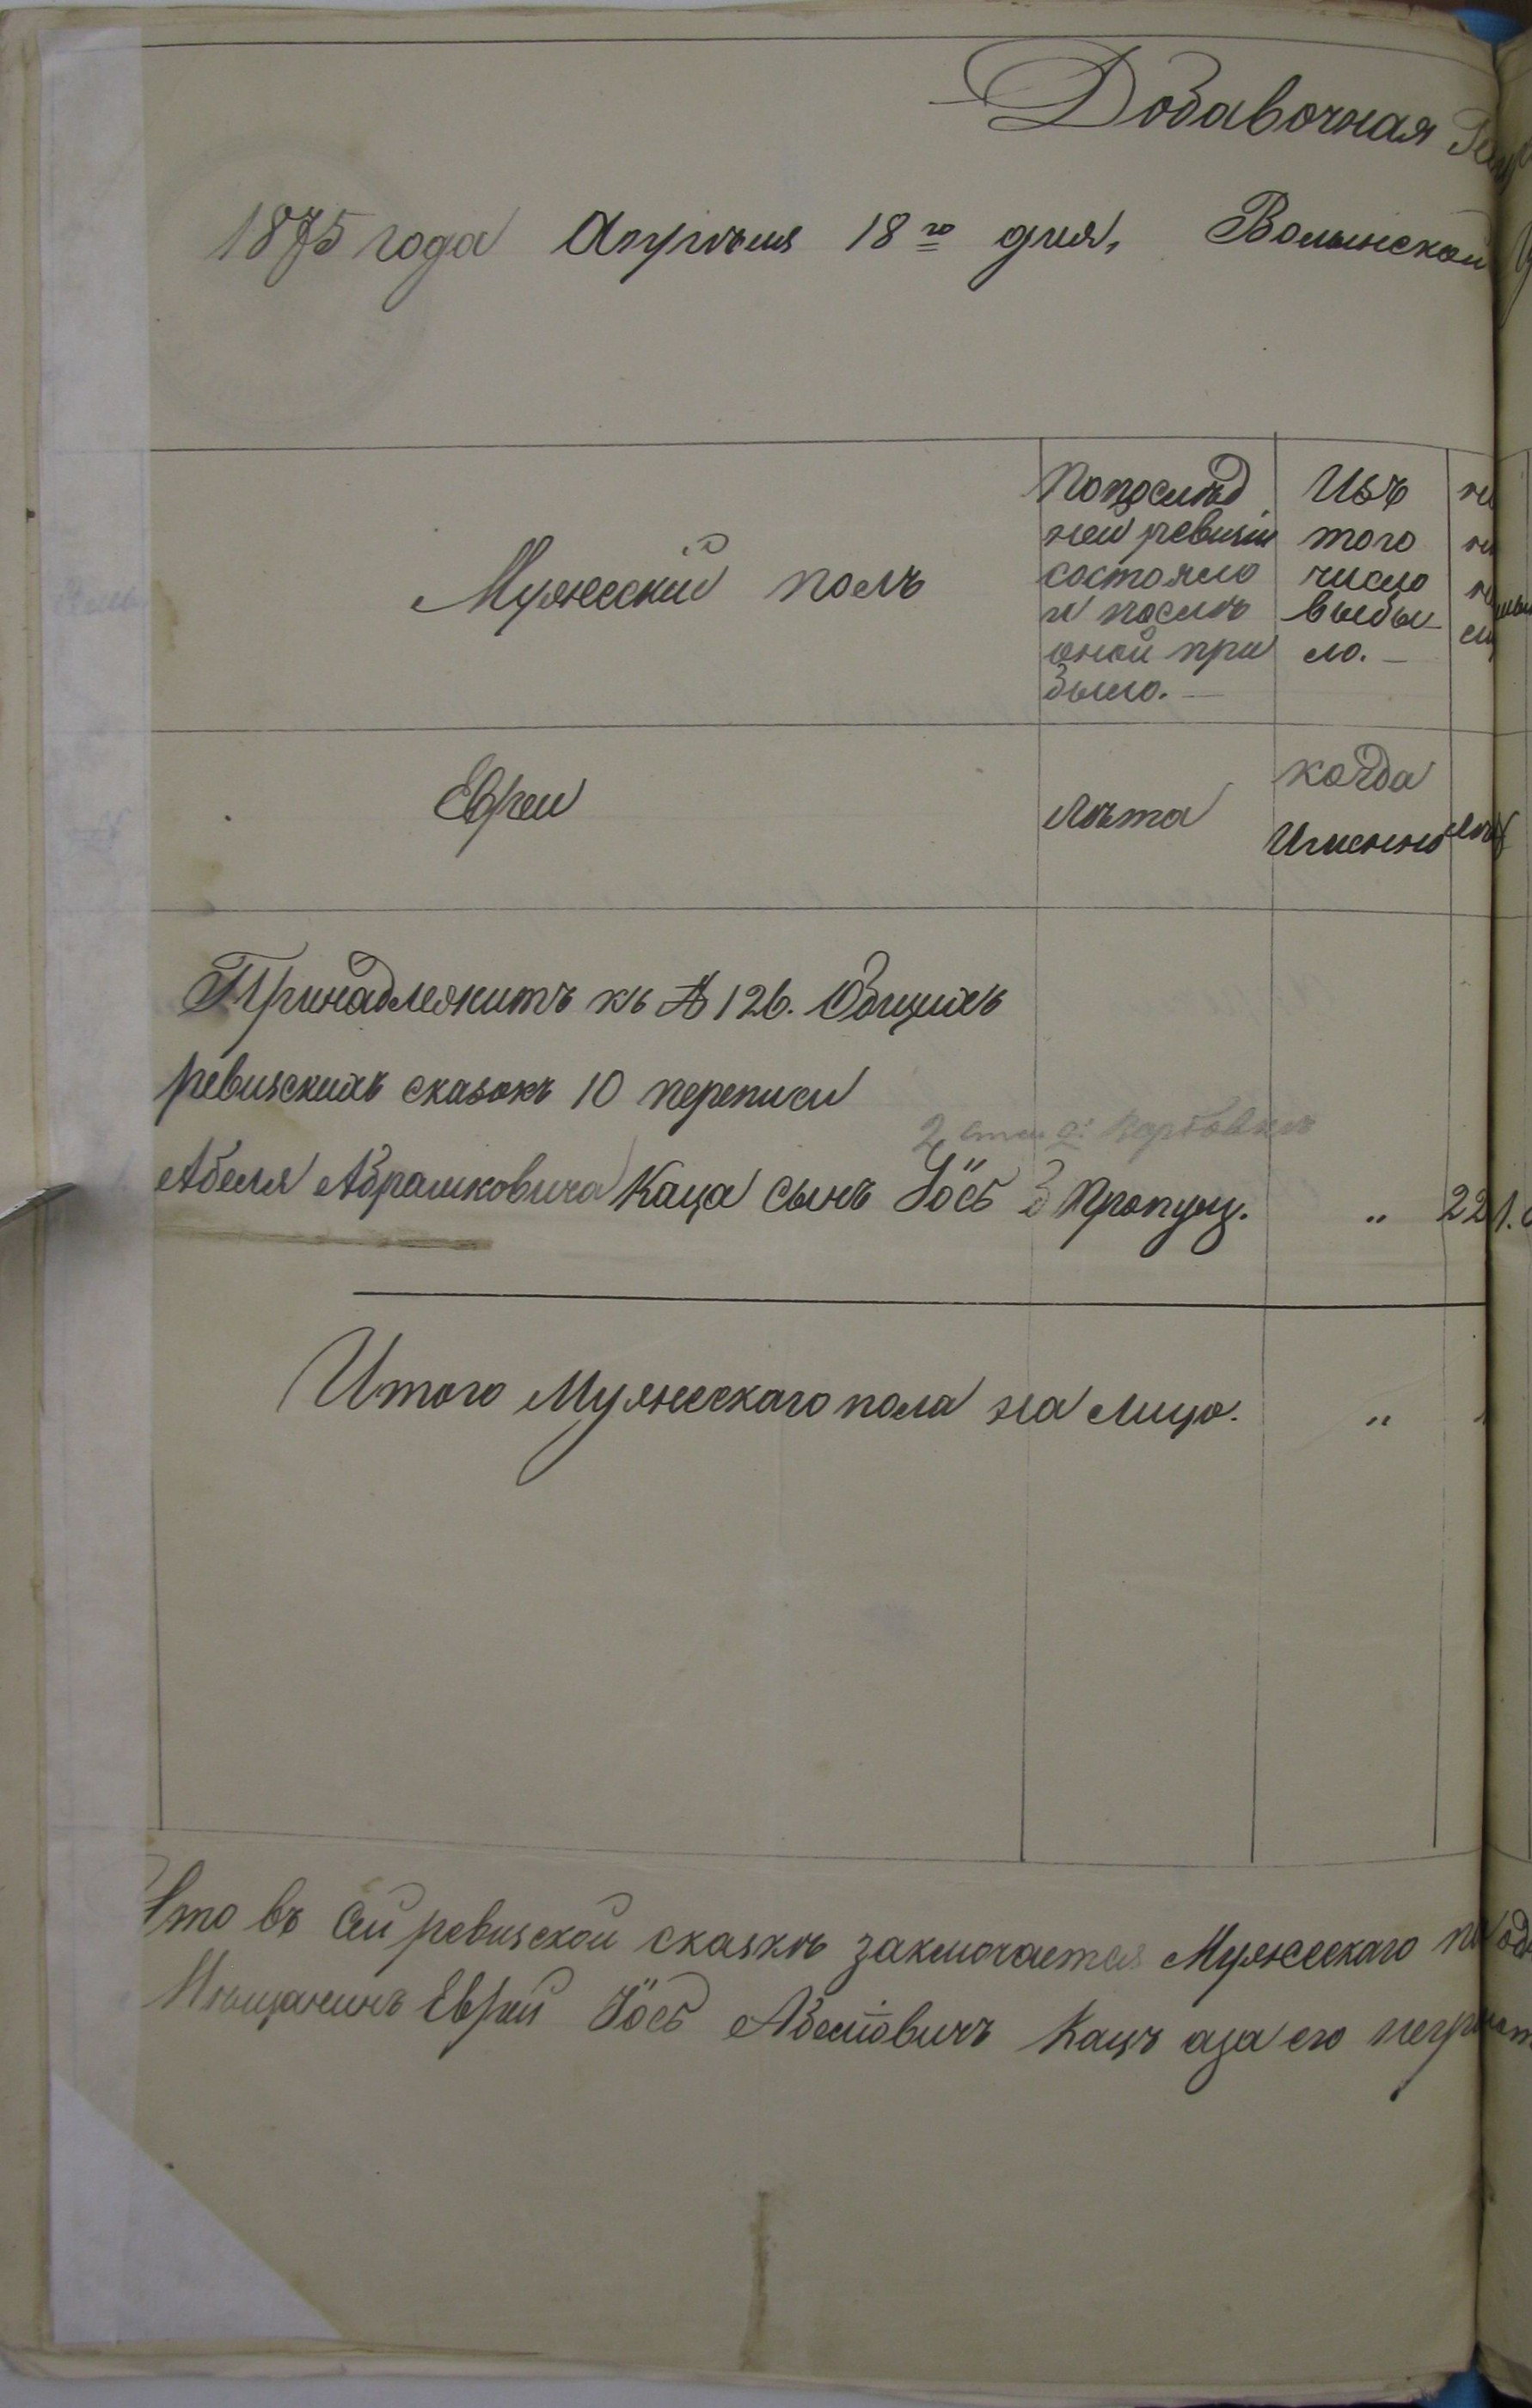 Добавочная
1875 года Апрѣля 18го дня, Волынской
Мужеский полъ
Попослѣд
ней ревизіи
состояло
и послѣ
оной при
было. —
Изъ
того
число
выбы-
ло. —
Евреи
лѣта
когда
Именно
Принадлежитъ къ № 126. Общихъ
ревизскихъ сказокъ 10 переписи
Абеля Абрашковича Каца сынъ Іосъ 3 пропущ. " 22
Итого Мужескаго пола на лицо. "
Что въ сей ревизской сказкѣ заключается Мужескаго
Мѣщанинъ Еврей Іосъ Абелiовичъ Кацъ аза его